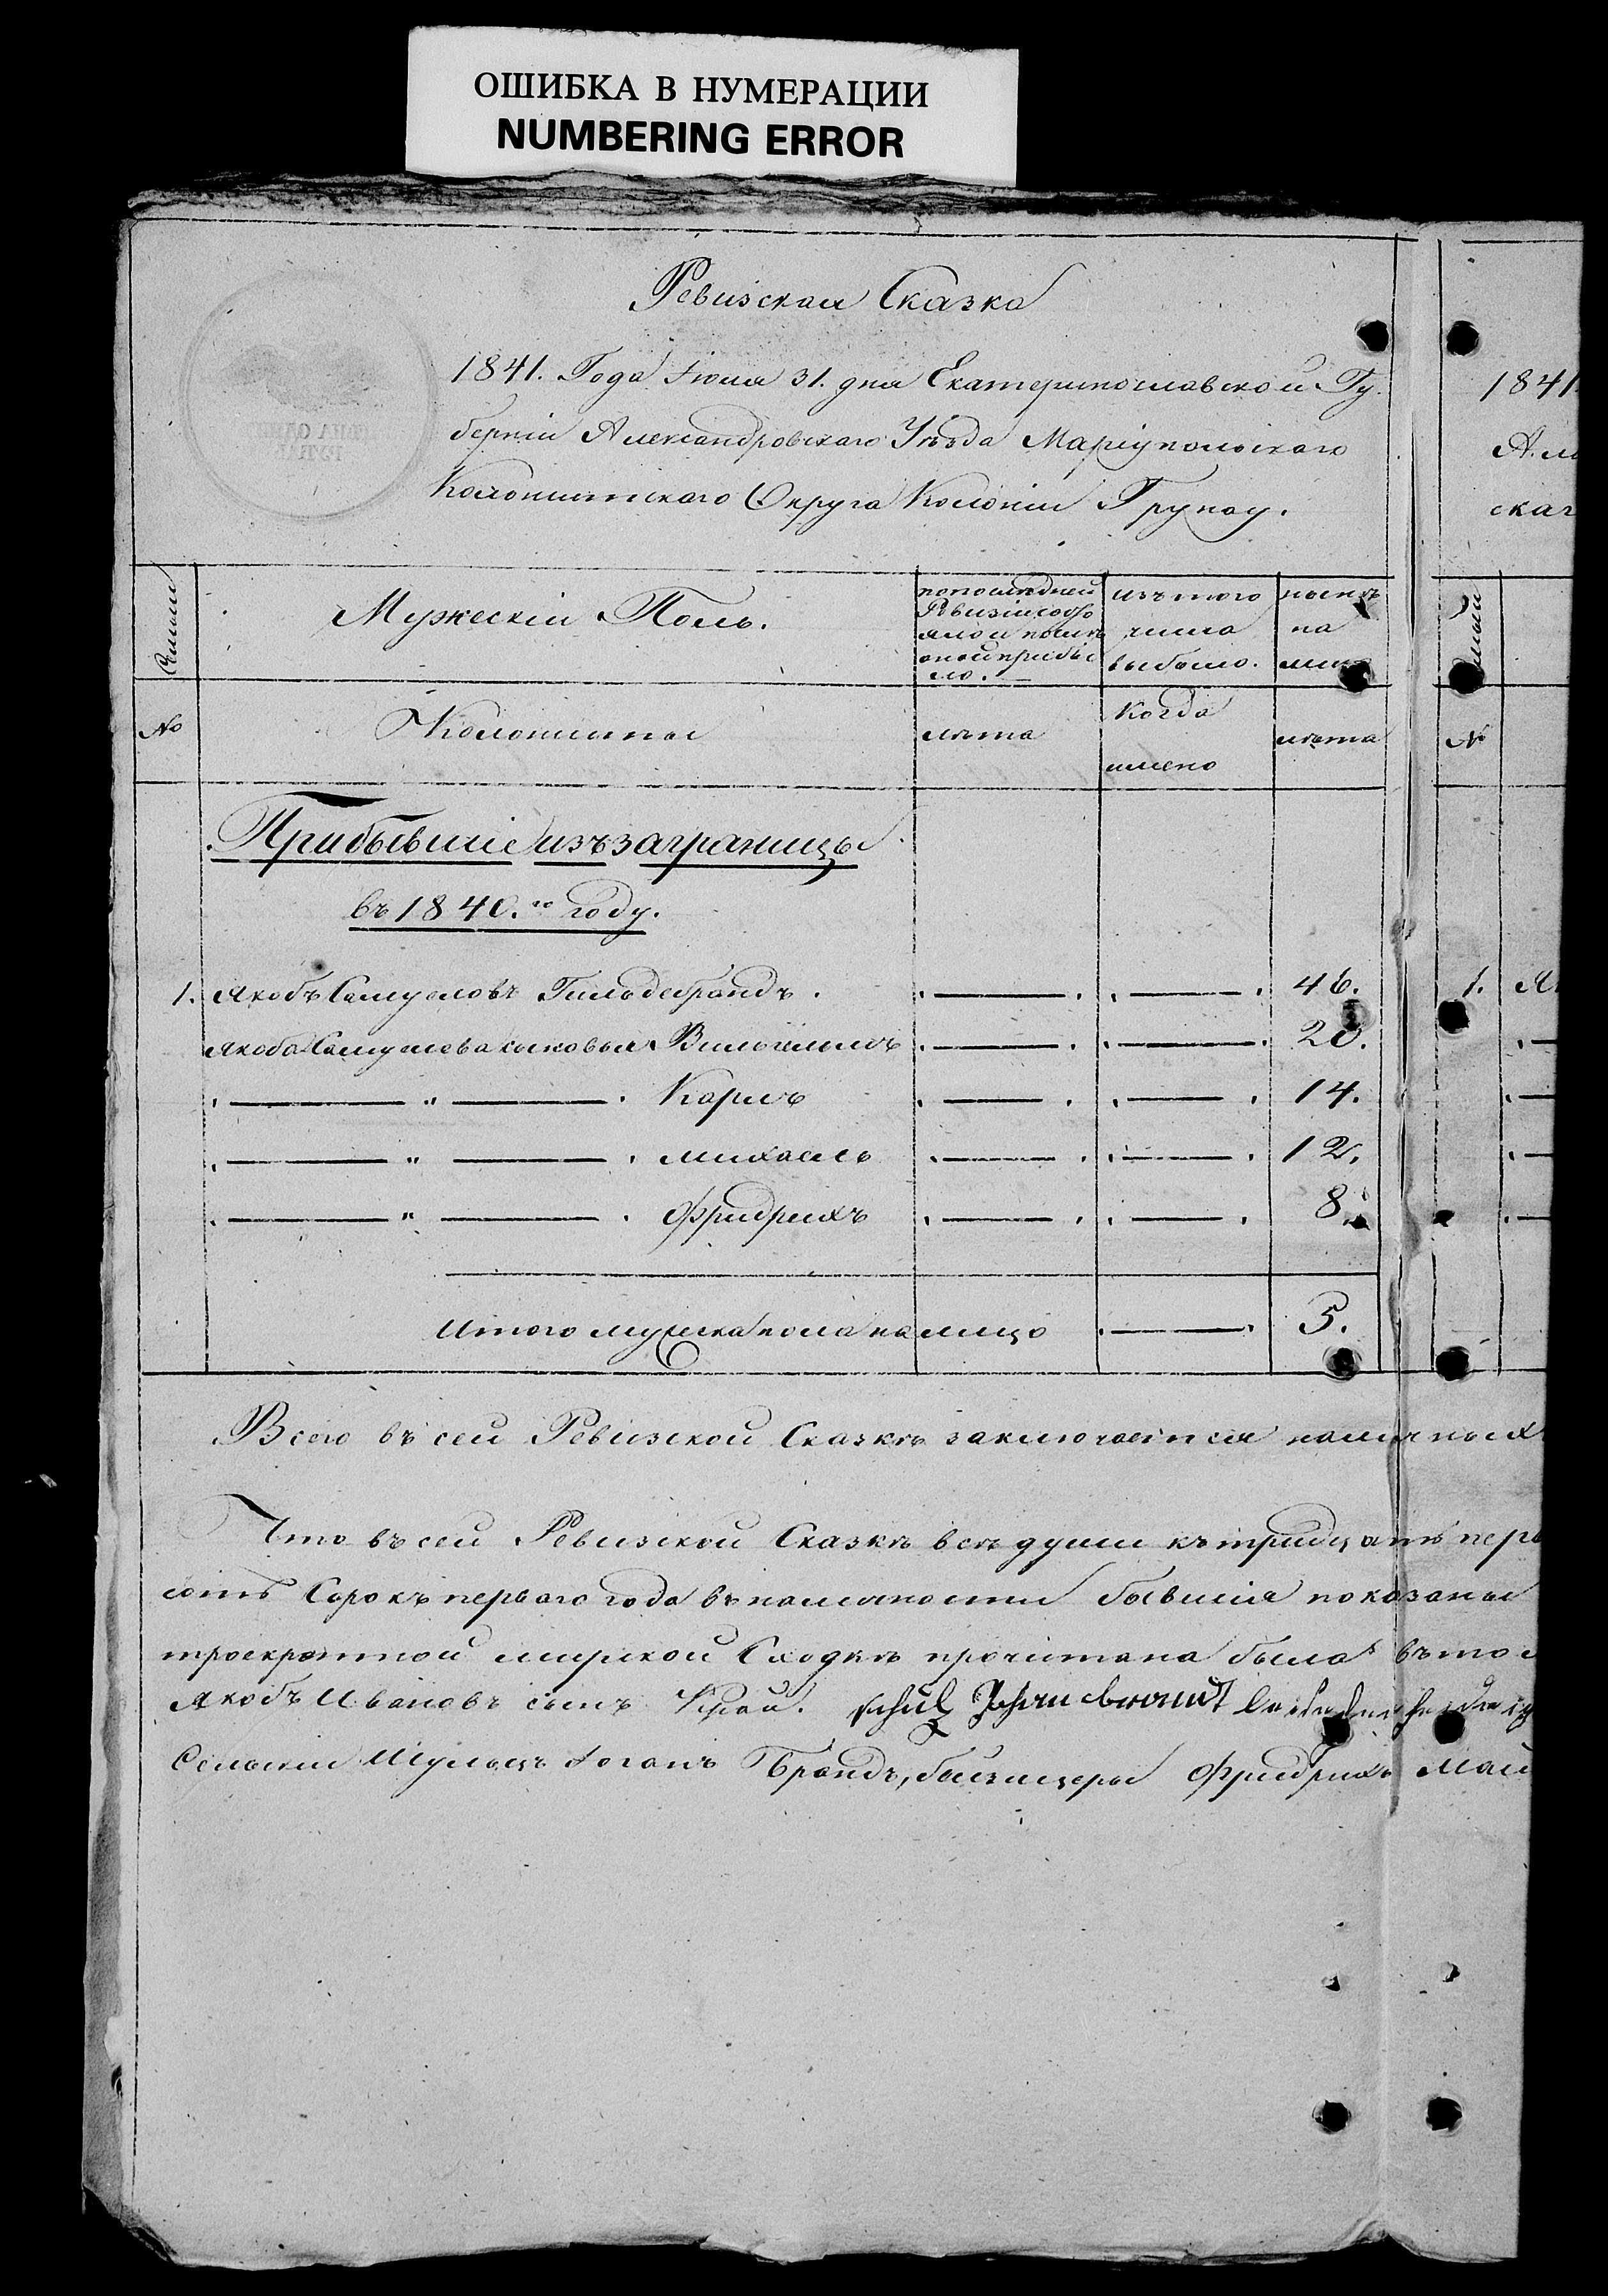 ОШИБКА В НУМЕРАЦИИ
NUMBERING ERROR
Ревизская Сказка
1841. Года Іюля 31. дня Екатеринославской Гу
берніи Александровскаго Уѣзда Маріупольскаго
Колонистскаго Округа Колоніи Грунау.
1841.
скаг
Мужескій Полъ.
попослѣдней
Ревизіи состо
яло и послѣ
оной прибы
ло.
изъ того
числа
выбыло.
нынѣ
на
лицо
№
Колонисты
лѣта
Когда
имено
лѣта
№
Прибывшіе изъ заграницы
въ 1840.го году.
1. Якобъ Самуеловъ Гильдебрандъ. 46. 1.
Якоба Самуелева сыновья Вильгельмъ 20.
Карлъ 14.
Михаель 12.
Фридрихъ 8.
Итого мужеска пола налицо 5.
Всего въ сей Ревизской Сказкѣ заключается наличныхъ
Что въ сей Ревизской Сказкѣ всѣ души къ тридцать перв
сотъ Сорокъ перваго года въ наличности бывшія показаны
троекратной мирской Сходкѣ прочитана была въ то
Якобъ Ивановъ сынъ schulz Johan brandt
Сельскій Шульцъ Іоганъ Брандъ, бейзицеры Фридрихъ